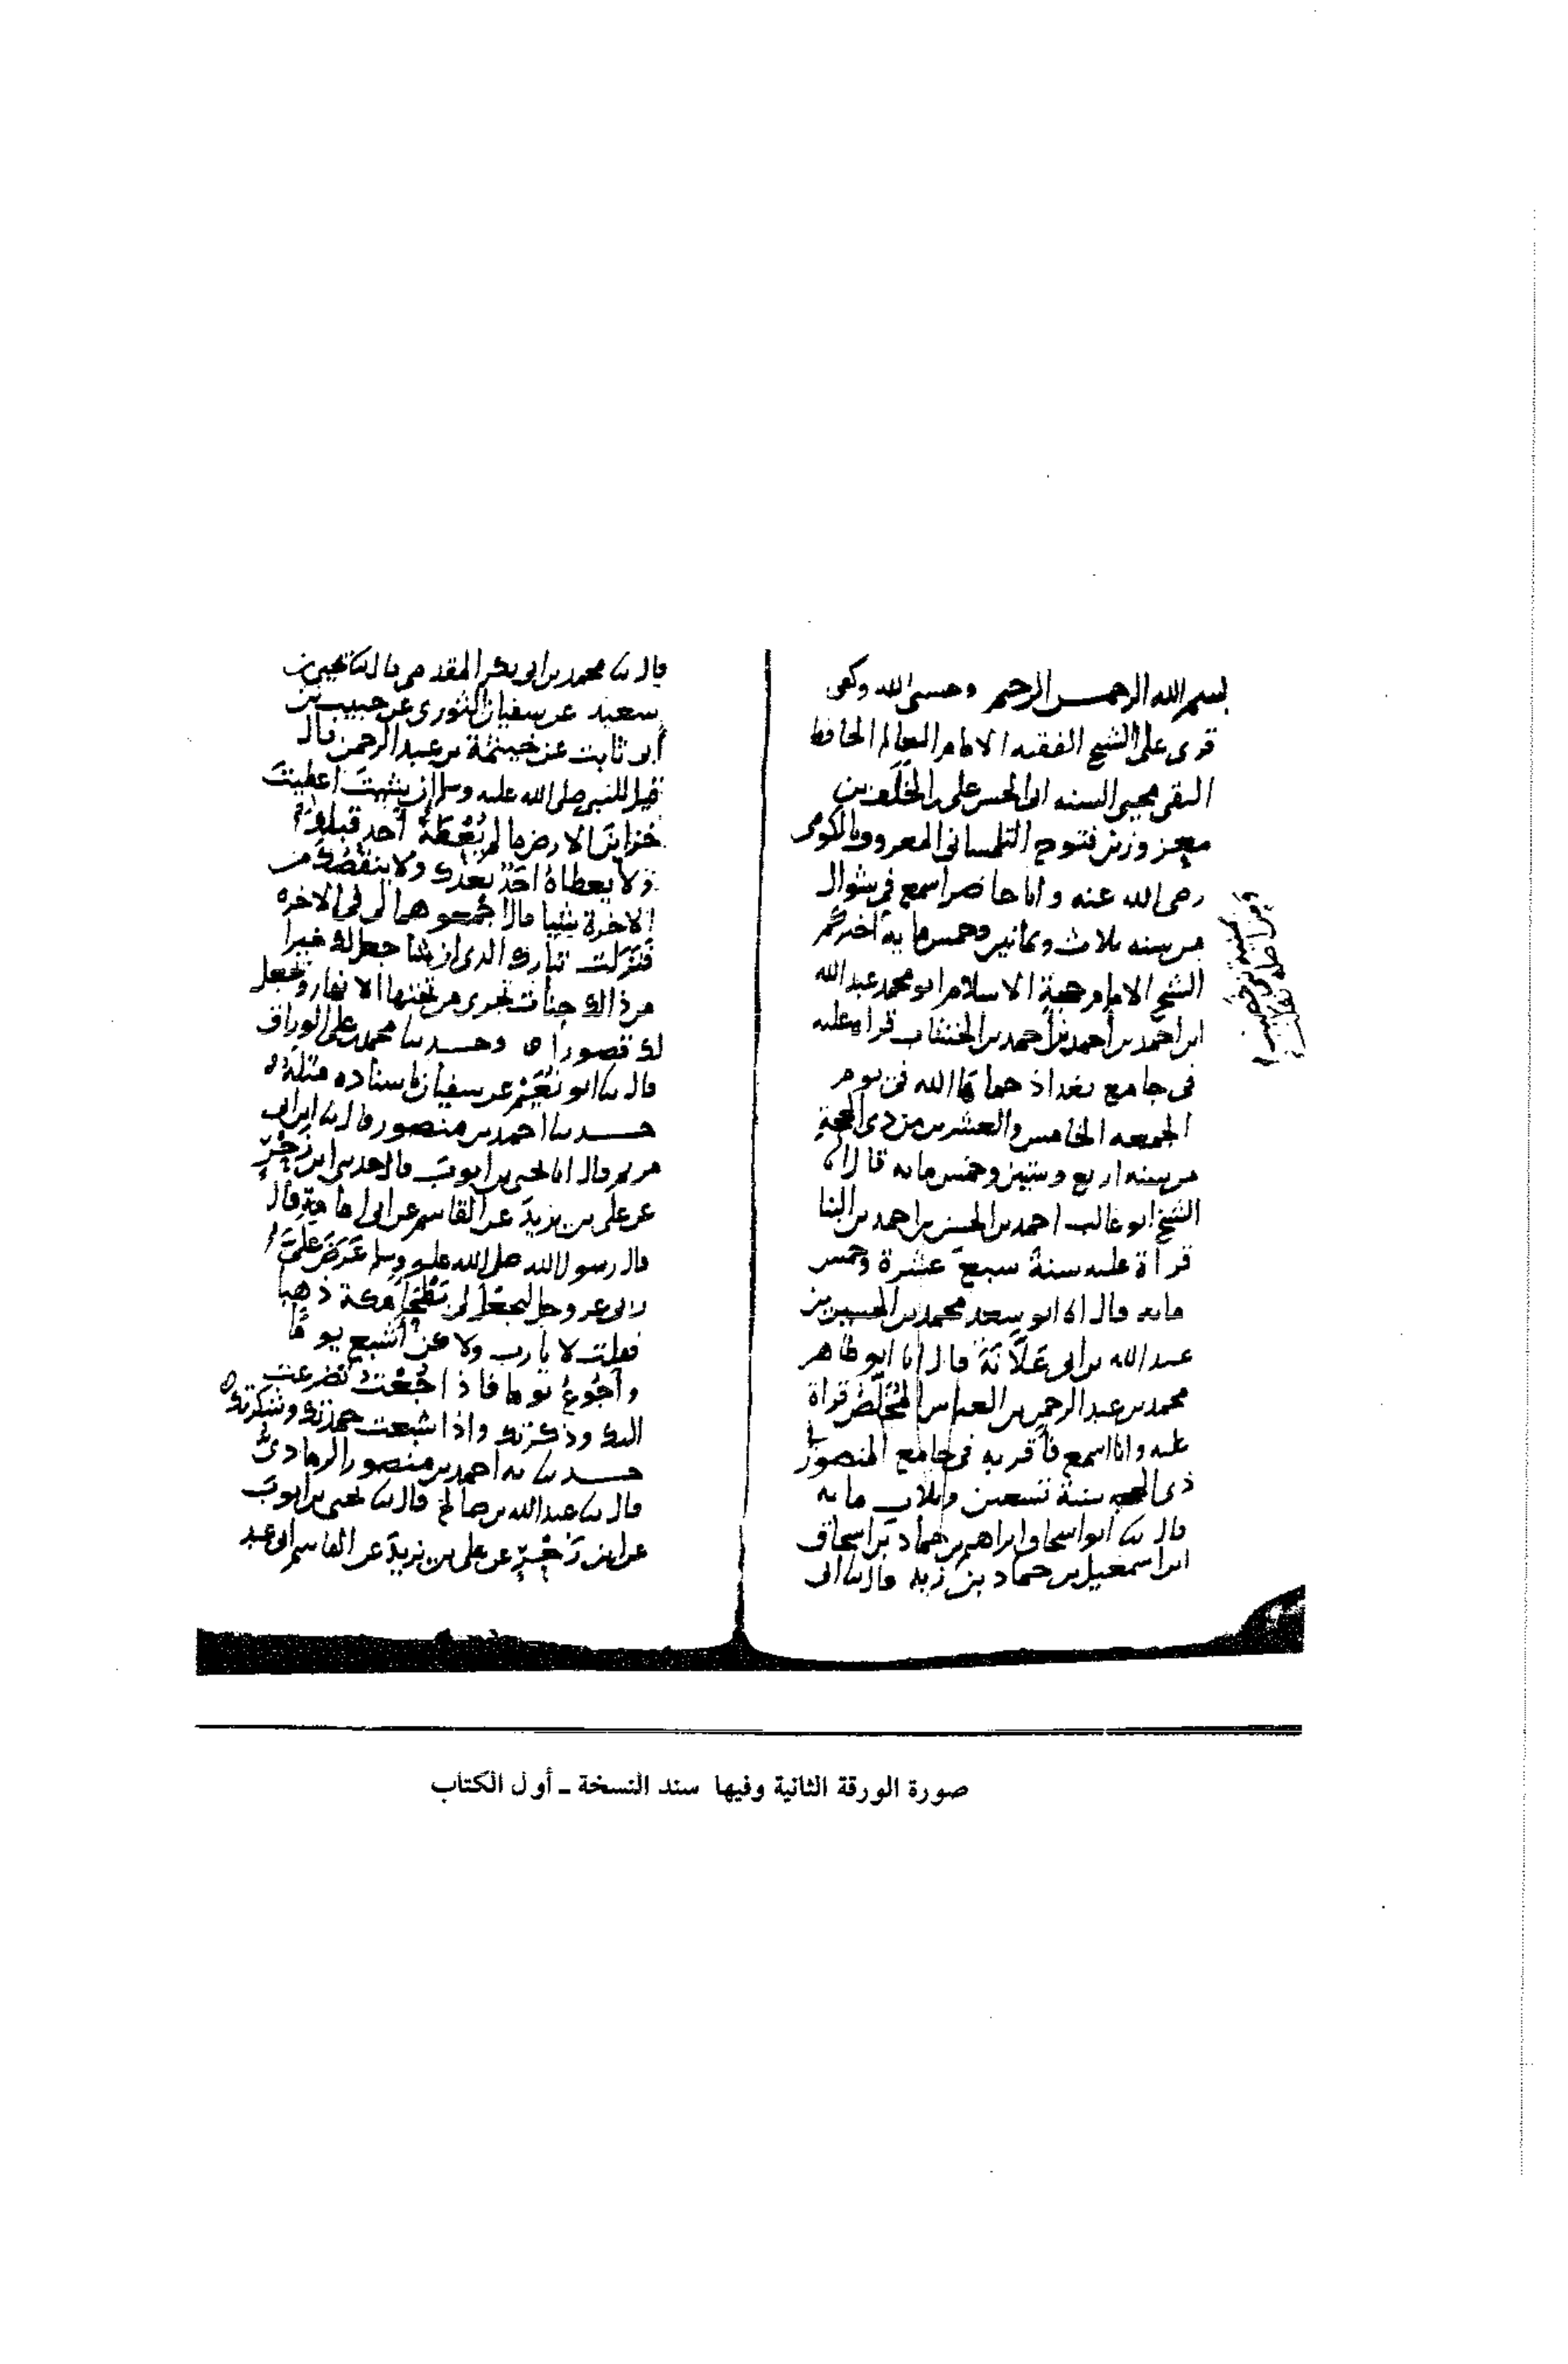 بسم الله الرحمن الرحيم وحسبي الله وكفى
قرى على الشيخ الفقيه الامام العالم الحافظ
التقى محيى السنه ابى الحسن على بن خلف بن
معزوز بن فتوح التلمسانى المعروف بالكومى
رضى الله عنه وانا حاضر اسمع فى شوال
من سنه ثلاث وثمانين وخمس مايه اخبركم
الشيخ الامام حجة الاسلام ابو محمد عبد الله
ابن احمد بن احمد بن احمد بن الخشاب قراه عليه
فى جامع بغداذ حماها الله فى يوم
الجمعه الخامس والعشرين من ذى الحجة
من سنه اربع وستين وخمس مايه قال انا
الشيخ ابو غالب احمد بن الحسن بن احمد بن البنا
قراة عليه سنة سبع عشرة وخمس
مايه قال انا ابو سعد محمد بن الحسين بن
عبد الله بن ابى علانة قال انا ابو طاهر
محمد بن عبد الرحمن بن العباس المخلص قراة
عليه وانا اسمع فأقر به فى جامع المنصور
ذى الحجه سنة تسعين وثلاث مايه
قال ثنا ابو اسحاق ابراهيم بن حماد بن اسحاق
ابن اسمعيل بن حماد بن زيد قال ثنا ابى
قال ثنا محمد بن ابى بكر المقدمى قال ثنا يحيى بن
سعيد عن سفيان الثورى عن حبيب بن
أبى ثابت عن خيثمة بن عبد الرحمن قال
قيل للنبى صلى الله عليه وسلم إن شيت أعطيت
خزائن الارض ما لم يُعْطَهُ أحد قبلك
ولا يعطاهُ احَدٌ بعدك ولا ينقصُك من
الاخرة شيا قال اجمعوها لى فى الاخره
فنزلت تبارك الذى ان شا جعل لك خيرا
من ذالك جنات تجرى من تحتها الانهار ويجعل
لك قصورا ه وحدثنا محمد بن على الوراق
قال ثنا ابو نُعَيْم عن سفيان باسناده مثلَهُ ه
حدثنا احمد بن منصور قال ثنا ابن ابى
مريم قال انا يحيى بن أيوبَ قال حدثنى ابن زَحْرٍ
عن على بن يزيدَ عن القاسم عن ابى امامةِ قال
قال رسول الله صلى الله عليه وسلم عَرَضَ عَلىَّ
ربى عز وجل ليجعل لى بَطْحَا مكة ذهبا
فقلت لا يارب ولاكن أشبع يومًا
وأجُوعُ يوما فاذا جُعْتُ تضرعت
اليك وذكرتك واذا شبعت حمدتك وشكرتك ه
حدثنا به احمد بن منصور الرمادىُّ
قال ثنا عبد الله بن صالح قال ثنا يحيى بن أيوبَ
عن ابن زَحْرٍ عن على بن يزيدَ عن القاسم ابى عبد
صورة الورقة الثانية وفيها سند النسخة ـ أول الكتاب